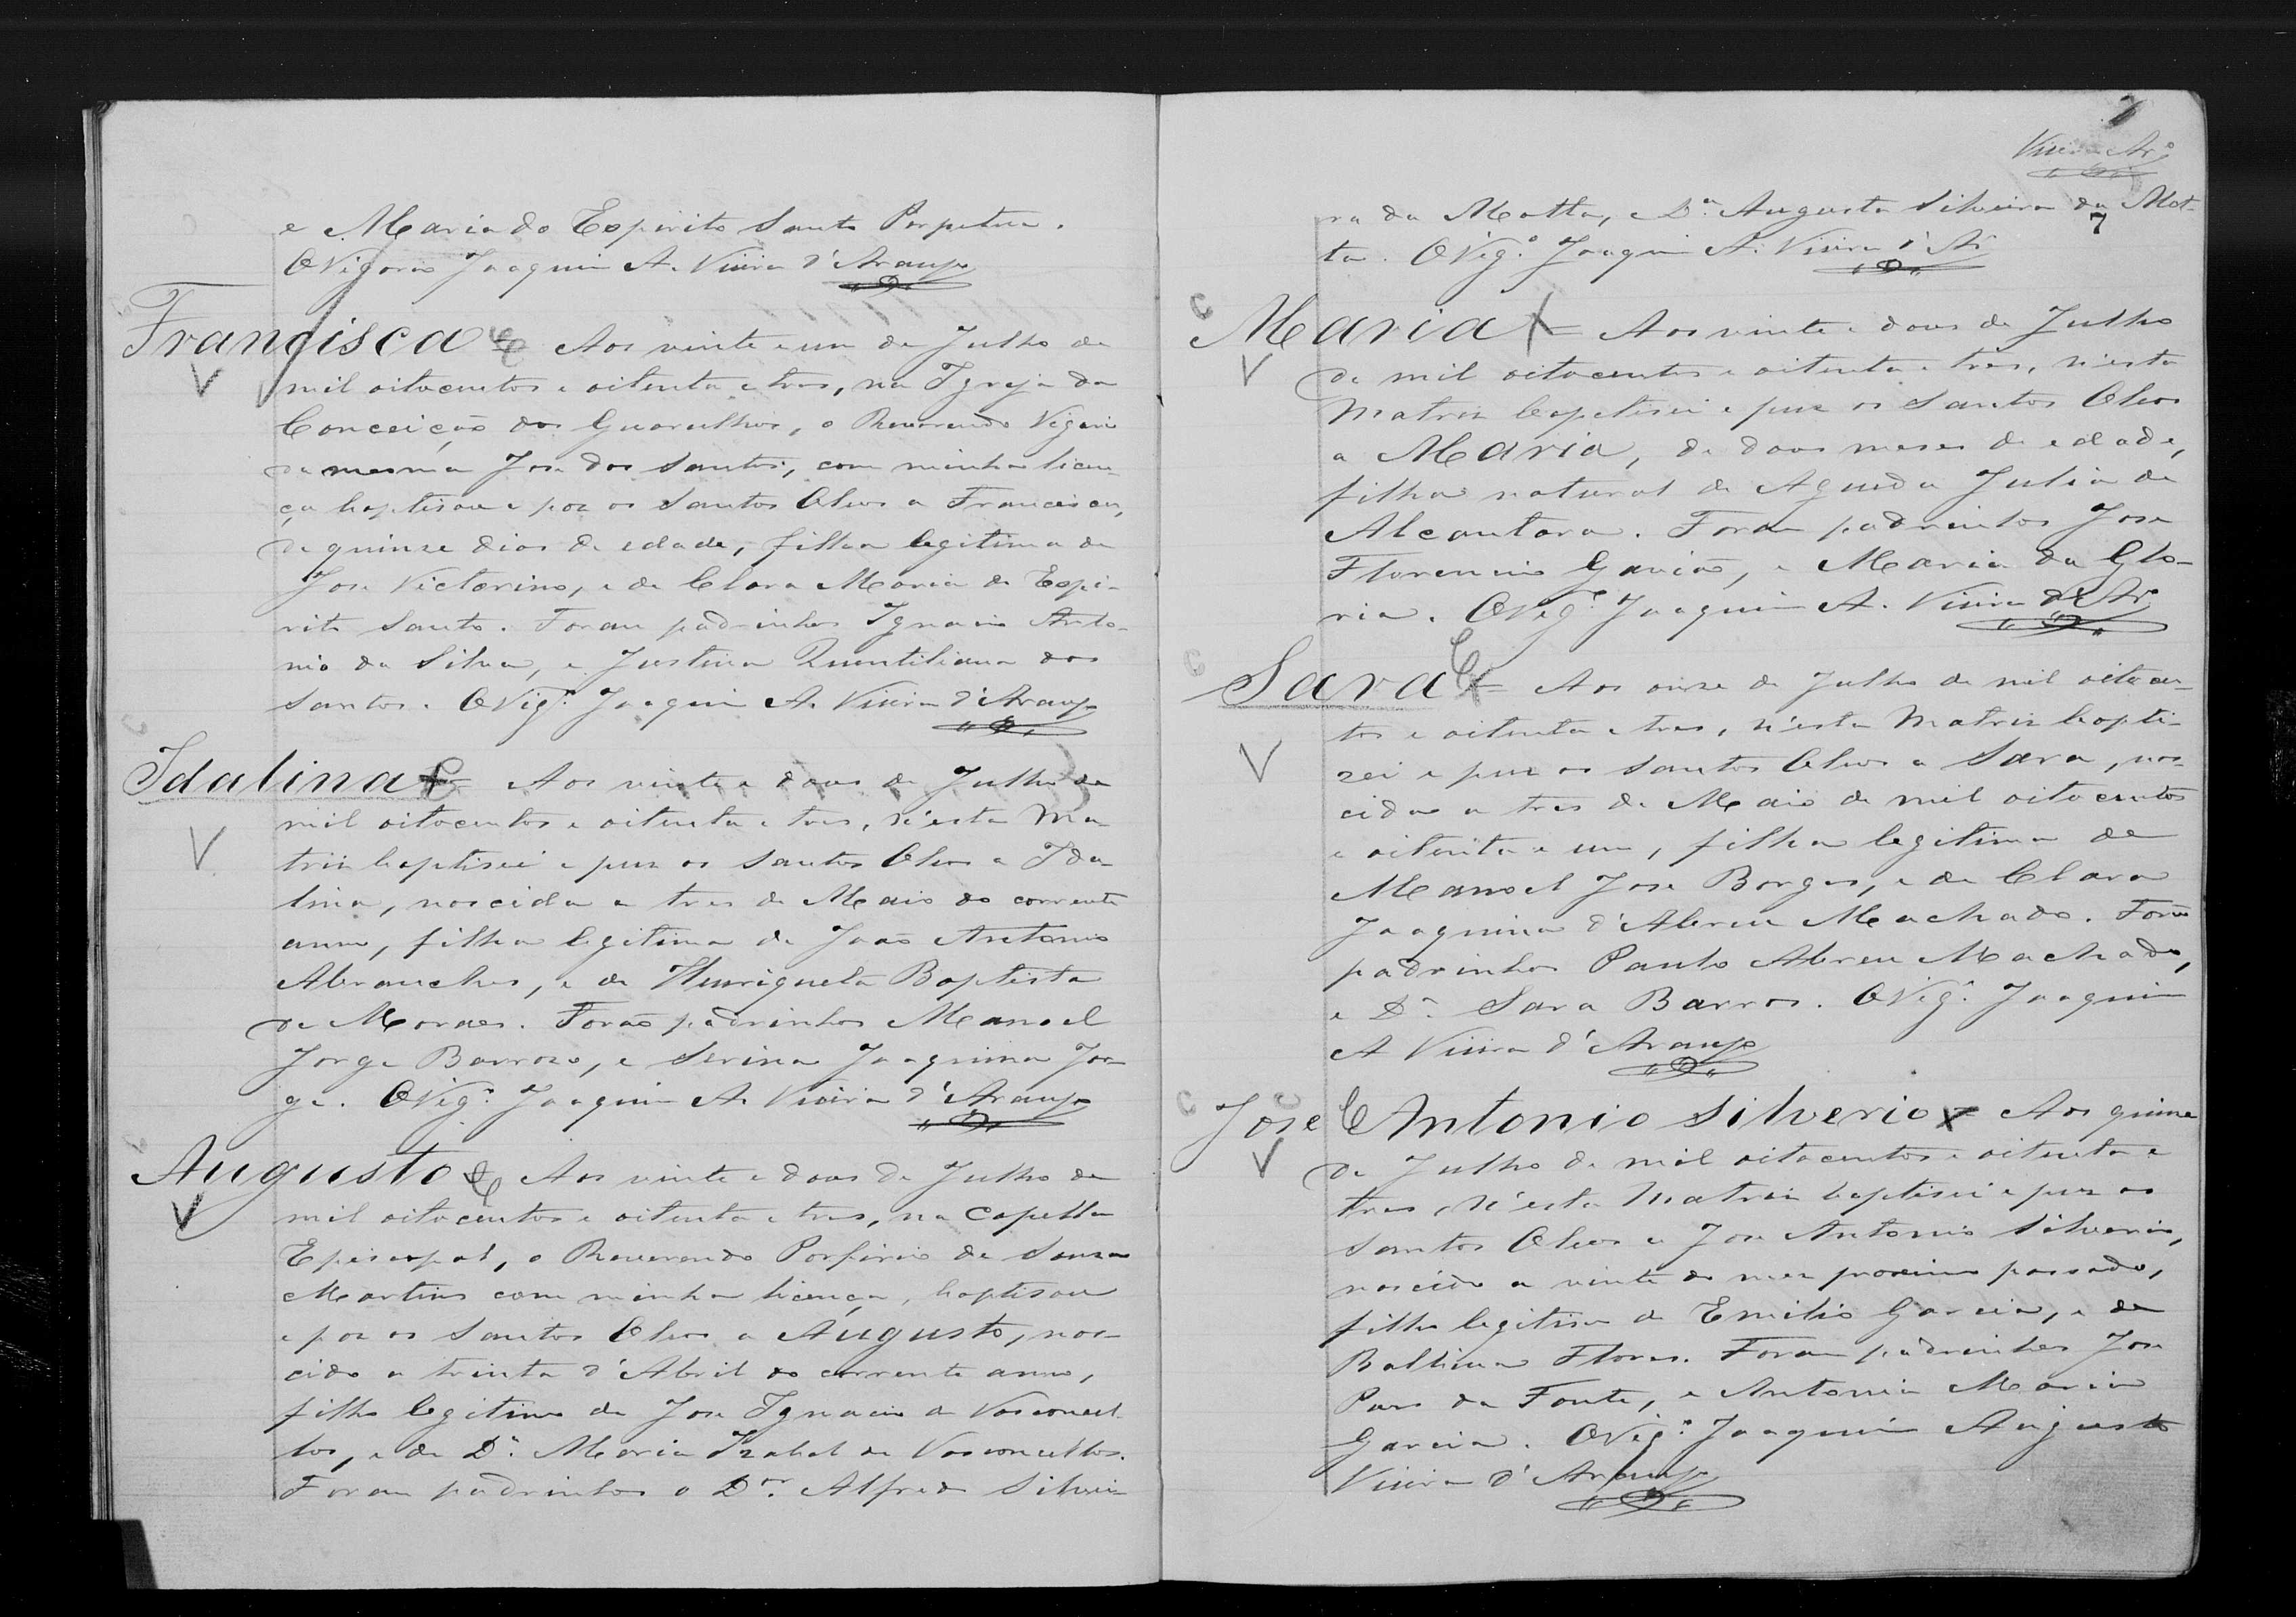 e Maria do Espirito Santo Perpetua.
O Vigario Joaquim A. Vieira d'Araujo
Francisca = Aos vinte e um de Julho de
mil oitocentos e oitenta e tres, na Igreja da
Conceição dos Guarulhos, o Reverendo Vigario
da mesma Jose dos Santos, com minha licen-
ça baptisou e poz os Santos Oleos a Francisca,
de quinze dias de edade, filha legitima de
Jose Victorino, e de Clara Maria do Espi-
rito Santo. Foram padrinhos Ignacio Anto-
nio da Silva, e Justina Quintiliana dos
Santos. O Vigº Joaquim A. Vieira d'Araujo
Idalina = Aos vinte e dous de Julho de
mil oitocentos e oitenta e tres, n'esta Ma-
triz baptisei e puz os Santos Oleos a Ida-
lina, nascida a tres de Maio do corrente
anno, filha legitima de João Antonio
Abranches, e de Henriqueta Baptista
de Moraes. Forão padrinhos Manoel
Jorge Barroso, e Serina Joaquina Jor-
ge. O Vigº Joaquim A. Vieira d'Araujo
Augusto = Aos vinte e dous de Julho de
mil oitocentos e oitenta e tres, na Capella
Episcopal, o Reverendo Porfirio de Souza
Martins com minha licença, baptisou
e poz os Santos Oleos a Augusto, nas-
cido a trinta d'Abril do corrente anno,
filho legitimo de Jose Ignacio de Vasconcel-
los, e de Dª Maria Izabel de Vasconcellos.
Foram padrinhos o Dor Alfredo Silvei-
Vieira Arº
7
ra da Motta, e Dª Augusta Silveira da Mot-
ta. O Vigº Joaquim A. Vieira d'Arº
Maria = Aos vinte e dous de Julho
de mil oitocentos e oitenta e tres, n'esta
Matriz baptisei e puz os Santos Oleos
a Maria, de dous meses de edade,
filha natural de Agueda Julia de
Alcantara. Foram padrinhos Jose
Florencio Gavião, e Maria da Glo-
ria. O Vigº Joaquim A. Vieira d'Arº
Sara = Aos onze de Julho de mil oitocen-
tos e oitenta e tres, n'esta Matriz bapti-
zei e puz os Santos Oleos a Sara, nas-
cida a tres de Maio de mil oitocentos
e oitenta e um, filha legitima de
Manoel Jose Borges, e de Clara
Joaquina d'Abreu Machado. Forão
padrinhos Paulo Abreu Machado,
e Dª Sara Barros. O Vigº Joaquim
A Vieira d'Araujo
Jose Antonio Silverio = Aos quinze
de Julho de mil oitocentos e oitenta e
tres, n'esta Matriz baptisei e puz os
Santos Oleos a Jose Antonio Silverio,
nascido a vinte do mez proximo passado,
filho legitimo de Emilio Garcia, e de
Balbina Flores. Foram padrinhos Jose
Paes da Fonte, e Antonia Maria
Garcia. O Vigº Joaquim Augusto
Vieira d'Araujo